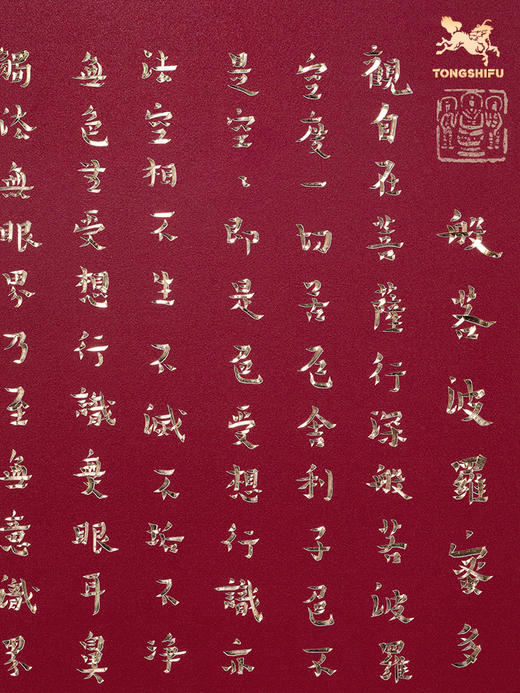 TONGSHIFU
般若波羅蜜多
觀自在菩薩行深般若波羅
空度一切苦厄舍利子色不
是空〻即是色受想行識亦
法空相不生不滅不垢不淨
無色無受想行識無眼耳鼻
觸法無眼界乃至無意識界